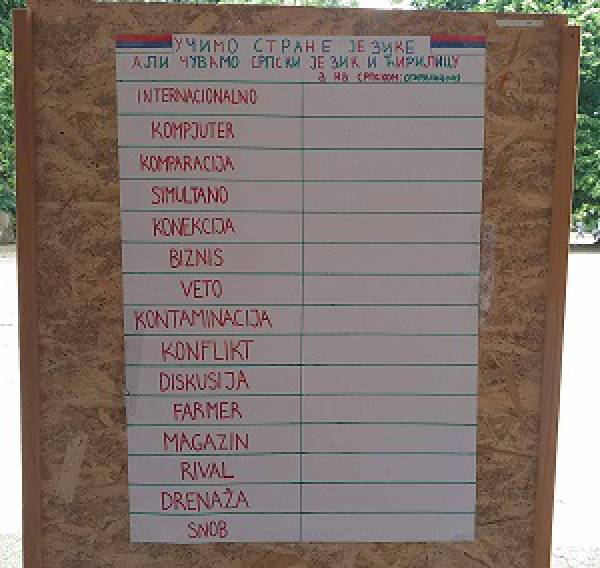 УЧИМО СТРАНЕ ЈЕЗИКЕ
АЛИ ЧУВАМО СРПСКИ ЈЕЗИК И ЋИРИЛИЦУ
А НА СРПСКОМ:
INTERNACIONALNO
KOMPJUTER
KOMPARACIJA
SIMULTANO
KONEKCIJA
BIZNIS
VETO
KONTAMINACIJA
KONFLIKT
DISKUSIJA
FARMER
MAGAZIN
RIVAL
DRENAŽA
SNOB